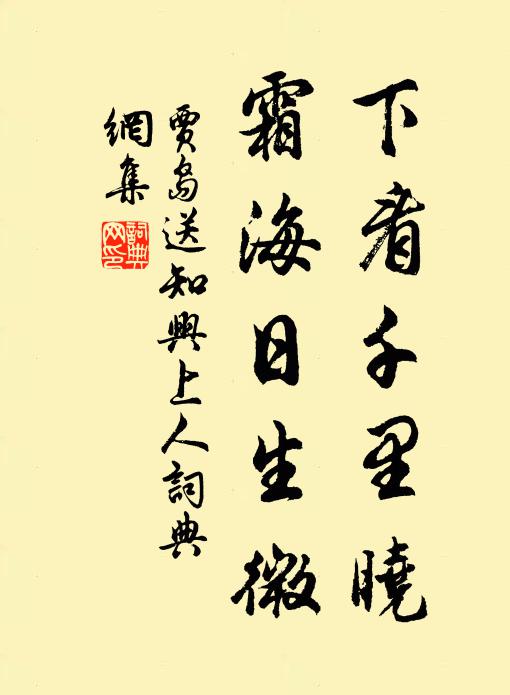 下看千里曉
霜海日生微
賈島送知興上人詞典
網集
詞典
网印